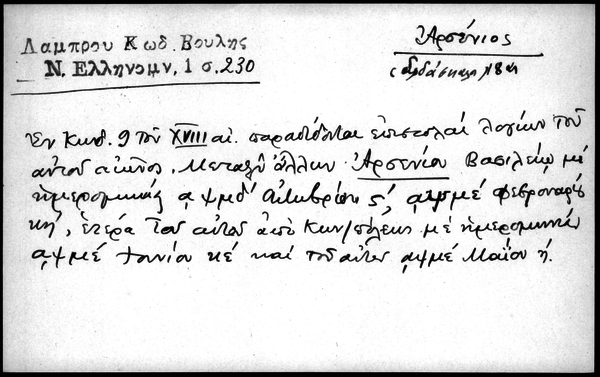 Λαμπρου Κωδ. Βουλης
Ν. Ελληνομν, 1 σ. 230
Ἀρσένιος
Ἐν Κωδ. 9 τοῦ XVIII αἰ. παραδίδονται ἐπιστολαὶ λογίων τοῦ
αὐτοῦ αἰῶνος, Μεταξὺ ἄλλων Ἀρσενίου Βασιλείῳ μὲ
ἡμερομηνίας ͵αψμδ' ς', ͵αψμέ φεβρουαρίου
κη', ἑτέρα τοῦ αὐτοῦ ἀπὸ Κων/πόλεως μὲ ἡμερομηνίαν
͵αψμέ Ἰουνίου κέ καὶ τοῦ αὐτοῦ ͵αψμέ Μαΐου ή.